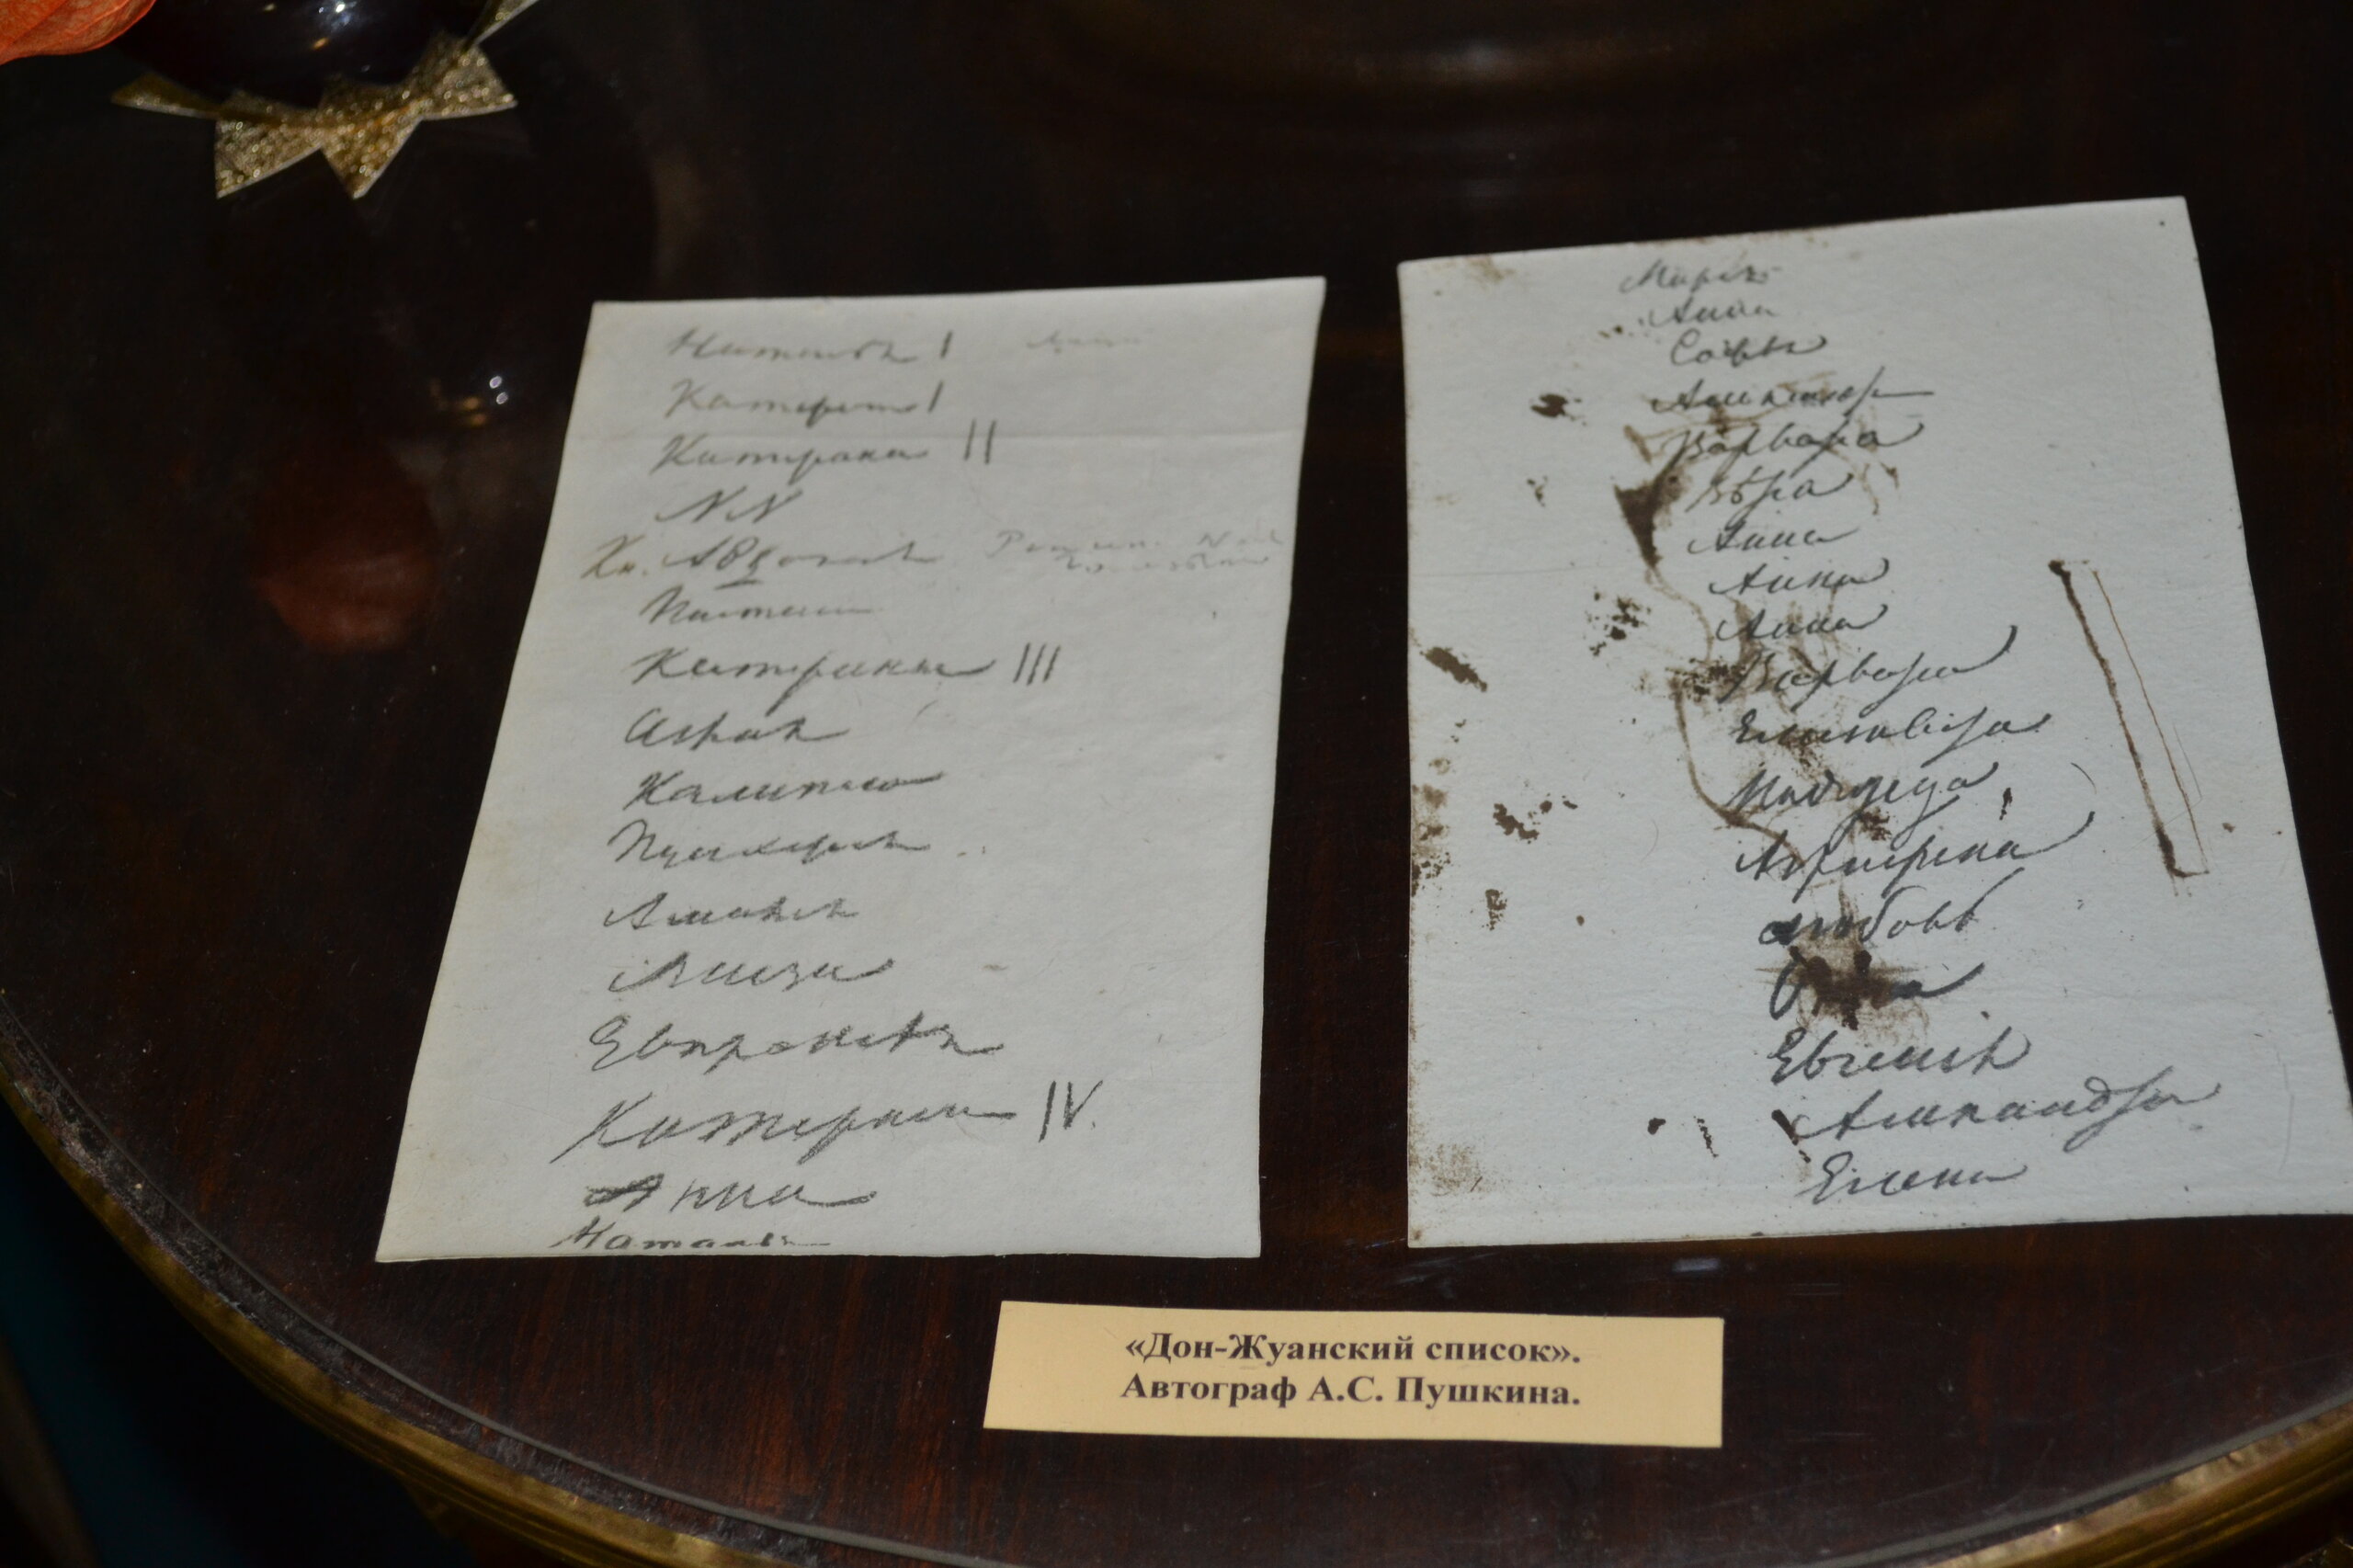 Наталья I
Катерина I
Катерина II
NN
Кн. Авдотия
Настасья
Катерина III
Аглая
Калипсо
Пулхерия
Амалия
Элиза
Евпраксея
Катерина IV.
Анна
Наталья
Мария
Анна
Софья
Александра
Варвара
Вѣра
Анна
Анна
Анна
Варвара
Елизавета
Надежда
Аграфена
Любовь
Ольга
Евгения
Александра
Елена
«Дон-Жуанский список».
Автограф А.С. Пушкина.